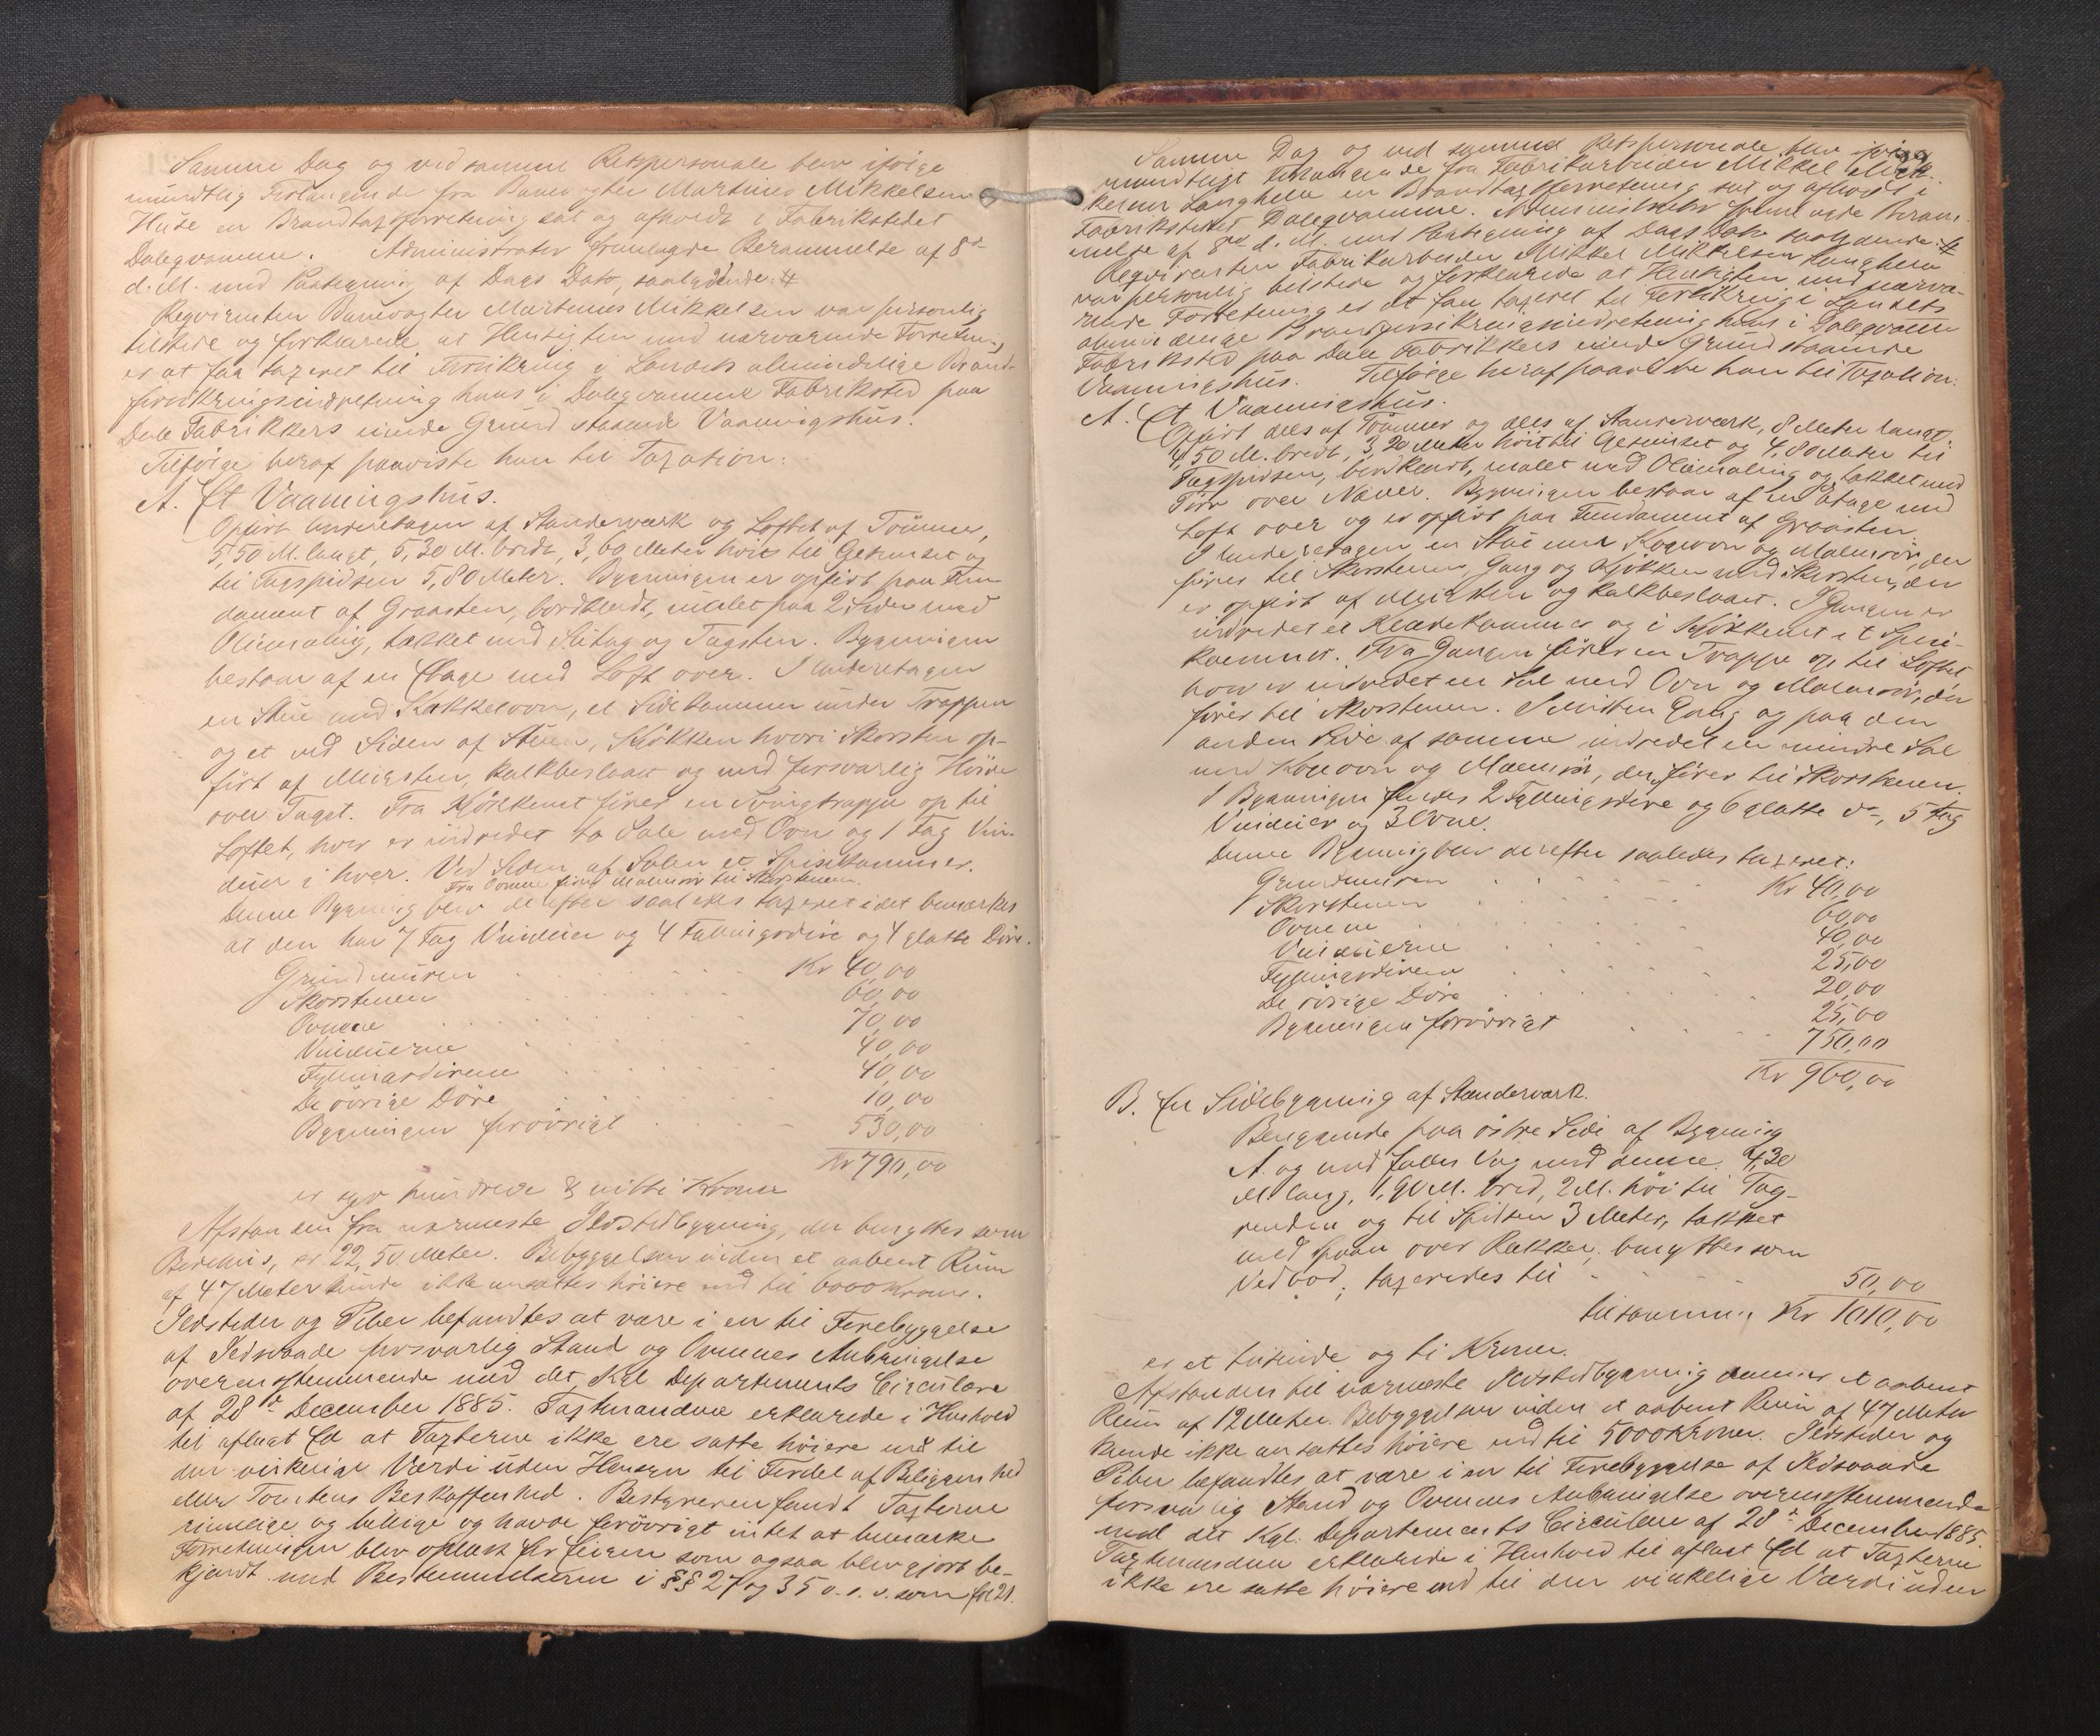 Samme Dag og ved samme Retspersonale blev ifølge
mundtlig Forlangende fra Banevogter Martinus Mikkelsen
Huse en Brandtaxtforretning sat og afholdt i Fabrikstedet
Daleqvamme. Administrator fremlagde Berammelse af 8de
d. M. med Paategning af Dags Dato, saalydende: #
Reqvirenten Banevogter Martinus Mikkelsen var personlig
tilstede og forklarede at Hensigten med nærværende Forretning
er at faa taxeret til Forsikring i Landets almindelige Brand-
forsikringsindretning hans i Daleqvamme Fabriksted paa
Dale Fabrikkers eiende Grund staaende Vaaningshus.
Tilfølge heraf paaviste han til Taxation:
A. Et Vaaningshus.
Opført Underetagen af Standerværk og Loftet af Tømmer,
5,50 M. langt, 5,30 M. bredt, 3,60 Meter høit til Gesimset og
til Tagspidsen 5,80 Meter. Bygningen er opført paa Fun
dament af Graasten, bordklædt, malet paa 2 Sider med
Oliemaling, tækket med Sutag og Tagsten. Bygningen
bestaar af en Etage med Loft over. I Underetagen
en Stue med Kakkelovn, et Sidekammer under Trappen
og et ved Siden af Stuen, Kjøkken hvori Skorsten op-
ført af Mursten, kalkbeslaaet og med forsvarlig Høide
over Taget. Fra Kjøkkenet fører en Svingtrappe op til
Loftet, hvor er indredet to Sale med Ovn og 1 Fag Vin-
duer i hver. Ved Siden af Salen et Spisekammer.
Fra Ovnene fører Malmrør til Skorstenen.
Denne Bygning blev derefter saaledes taxeret idet bemærkes
at den har 7 Fag Vinduer og 4 Fyllingsdøre og 4 glatte Døre.
Grundmuren Kr 40,00
Skorstenen 60,00
Ovnene 70,00
Vinduerne 40,00
Fyllingsdørene 40,00
De øvrige Døre 10,00
Bygningen forøvrigt 530,00
Kr 790,00
er syv hundrede & nitti Kroner
Afstanden fra nærmeste Ildstedbygning, der benyttes som
Beboelses, er 22,50 Meter. Bebyggelsen inden et aabent Rum
af 47 Meter kunde ikke ansættes høiere end til 6000 Kroner.
Ildsteder og Piber befandtes at være i en til Forebyggelse
af Ildsvaade forsvarlig Stand og Ovnenes Anbringelse
overensstemmende med det Kgl Departements Circulære
af 28de December 1885. Taxtmændene erklærede i Henhold
til aflagt Ed at Taxterne ikke ere satte høiere end til
den virkelige Værdi uden Hensyn til Fordel af Beliggenhed
eller Tomtens Beskaffenhed. Bestyreren fandt Taxterne
rimelige og billige og havde forøvrigt intet at bemærke
Forretningen blev oplæst for Eieren som ogsaa blev gjort be-
kjendt med Bestemmelserne i §§ 27 og 35 o. s. v. som fol 21.
Samme Dag og ved samme Retspersonale blev ifølge
mundtligt Forlangende fra Fabrikarbeider Mikkel Mik-
kelsen Langhelle en Brandtaxtforretning sat og afholdt i
Fabrikstedet Daleqvamme. Administrator fremlagde Beram-
melse af 8de d. M. med Paategning af Dags Dato saalydende: #
Reqvirenten Fabrikarbeider Mikkel Mikkelsen Langhelle
var personlig tilstede og forklarede at Hensigten med nærvæ-
rende Forretning er at faa taxeret til Forsikring i Landets
almindelige Brandforsikringsindretning hans i Daleqvamme
Fabriksted paa Dale Fabrikkers eiende Grund staaende
Vaaningshus. Tilfølge heraf paaviste han til Taxation:
A. Et Vaaningshus.
Opført dels af Tømmer og dels af Standerværk, 8 Meter langt,
4,50 M. bredt, 3,20 Meter høit til Gesimset og 4,80 Meter til
Tagspidsen, bordklædt, malet med Oliemaling og tækket med
Torv over Næver. Bygningen bestaar af en Etage med
Loft over og er opført paa Fundament af Graasten.
I Underetagen en Stue med Kogeovn og Malmrør, der
fører til Skorstenen, Gang og Kjøkken med Skorsten, der
er opført af Mursten og kalkbeslaaet. I Gangen er
indredet et Klædekammer og i Kjøkkenet et Spise-
kammer. Fra Gangen fører en Trappe op til Loftet
hvor er indredet en Sal med Ovn og Malmrør, der
fører til Skorstenen. Siden Gang og paa den
anden Side af samme indredet en mindre Sal
med Kogeovn og Malmrør, der fører til Skorstenen.
I Bygningen findes 2 Fyllingsdøre og 6 glatte do, 5 Fag
Vinduer og 3 Ovne.
Denne Bygning blev derefter saaledes taxeret:
Grundmuren Kr 40,00
Skorstenen 60,00
Ovnene 40,00
Vinduerne 25,00
Fyllingsdørene 20,00
De øvrige Døre 25,00
Bygningen forøvrigt 750,00
Kr 960,00
B. En Sidebygning af Standerværk.
Beliggende paa østre Side af Bygning
A. og med fælles Væg med denne. 4,30
M. lang, 1,90 M. bred, 2 M. høi til Tag-
renden og til Spidsen 3 Meter, tækket
med Spaan over Rækker, benyttes som
Vedbod, taxeredes til 50,00
tilsammen Kr 1010,00
er et tusinde og ti Kroner.
Afstanden til nærmeste Ildstedbygning danner et aabent
Rum af 12 Meter. Bebyggelsen inden et aabent Rum af 47 Meter
kunde ikke ansættes høiere end til 5000 Kroner. Ildsteder og
Piber befandtes at være i en til Forebyggelse af Ildsvaade
forsvarlig Stand og Ovnenes Anbringelse overensstemmende
med det Kgl. Departements Circulære af 28de December 1885.
Taxtmændene erklærede i Henhold til aflagt Ed at Taxterne
ikke ere satte høiere end til den virkelige Værdi uden